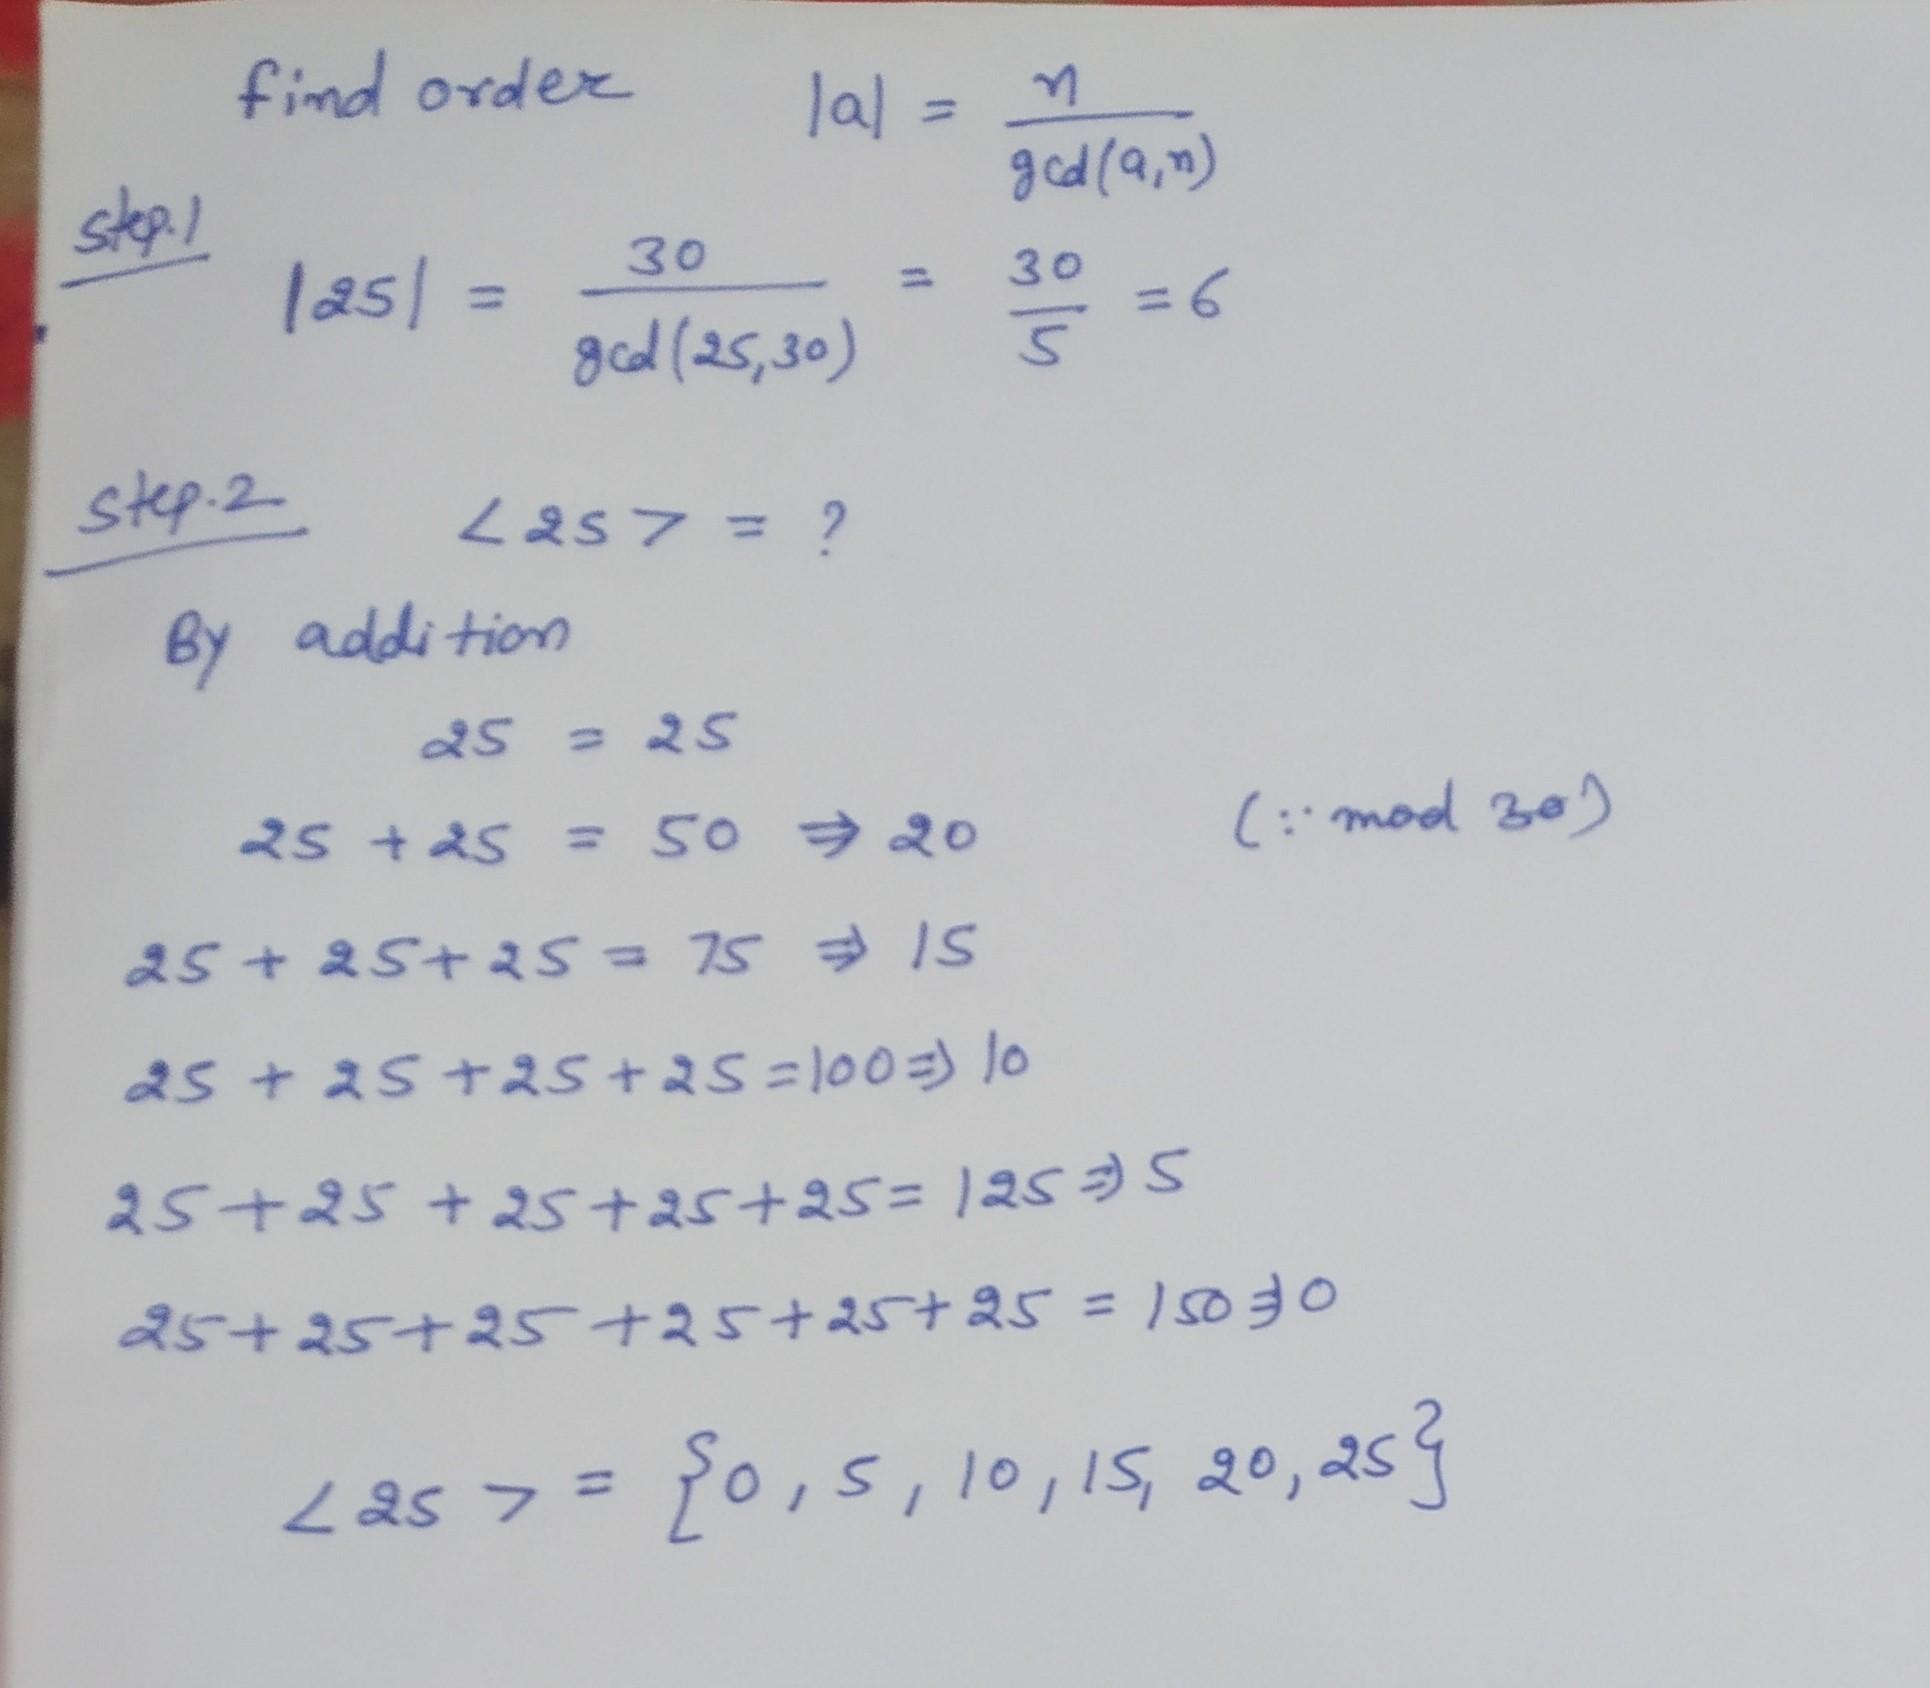 find order |a| = n / gcd(a,n)
step.1
|25| = 30 / gcd(25,30) = 30 / 5 = 6
step.2 <25> = ?
By addition
25 = 25
25 + 25 = 50 ⇒ 20 (∵ mod 30)
25 + 25 + 25 = 75 ⇒ 15
25 + 25 + 25 + 25 = 100 ⇒ 10
25 + 25 + 25 + 25 + 25 = 125 ⇒ 5
25 + 25 + 25 + 25 + 25 + 25 = 150 ⇒ 0
<25> = {0, 5, 10, 15, 20, 25}